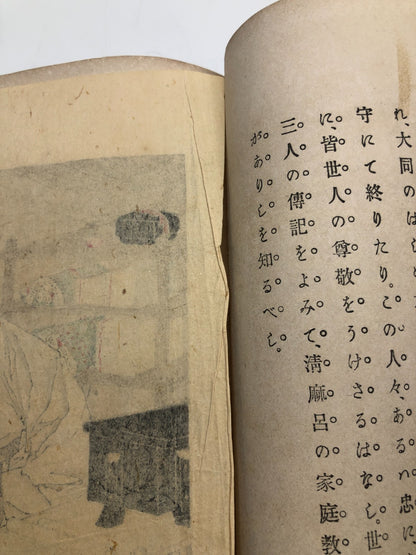 れ、大同のは
守にて終りたり。この人々、あるハ忠に
に、皆世人の尊敬をうけさるはなし。世
三人の傳記をよみて、淸麻呂の家庭教
がありしを知るべし。